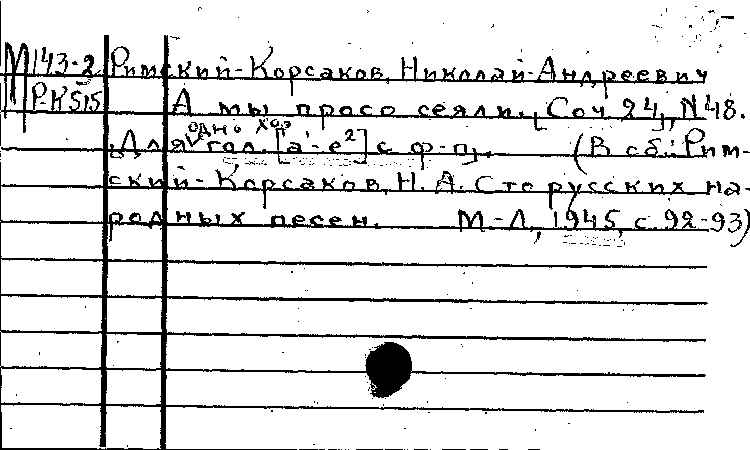 М143-2 Римский-Корсаков, Николай Андреевич
Р-К515 А мы просо сеяли. [Соч. 24], №48.
одн. хор
Для гол. [a'-e²] с ф-п. (В сб.: Рим-
ский-Корсаков, Н. А. Сто русских на-
родных песен. М-Л, 1945, с. 92-93)